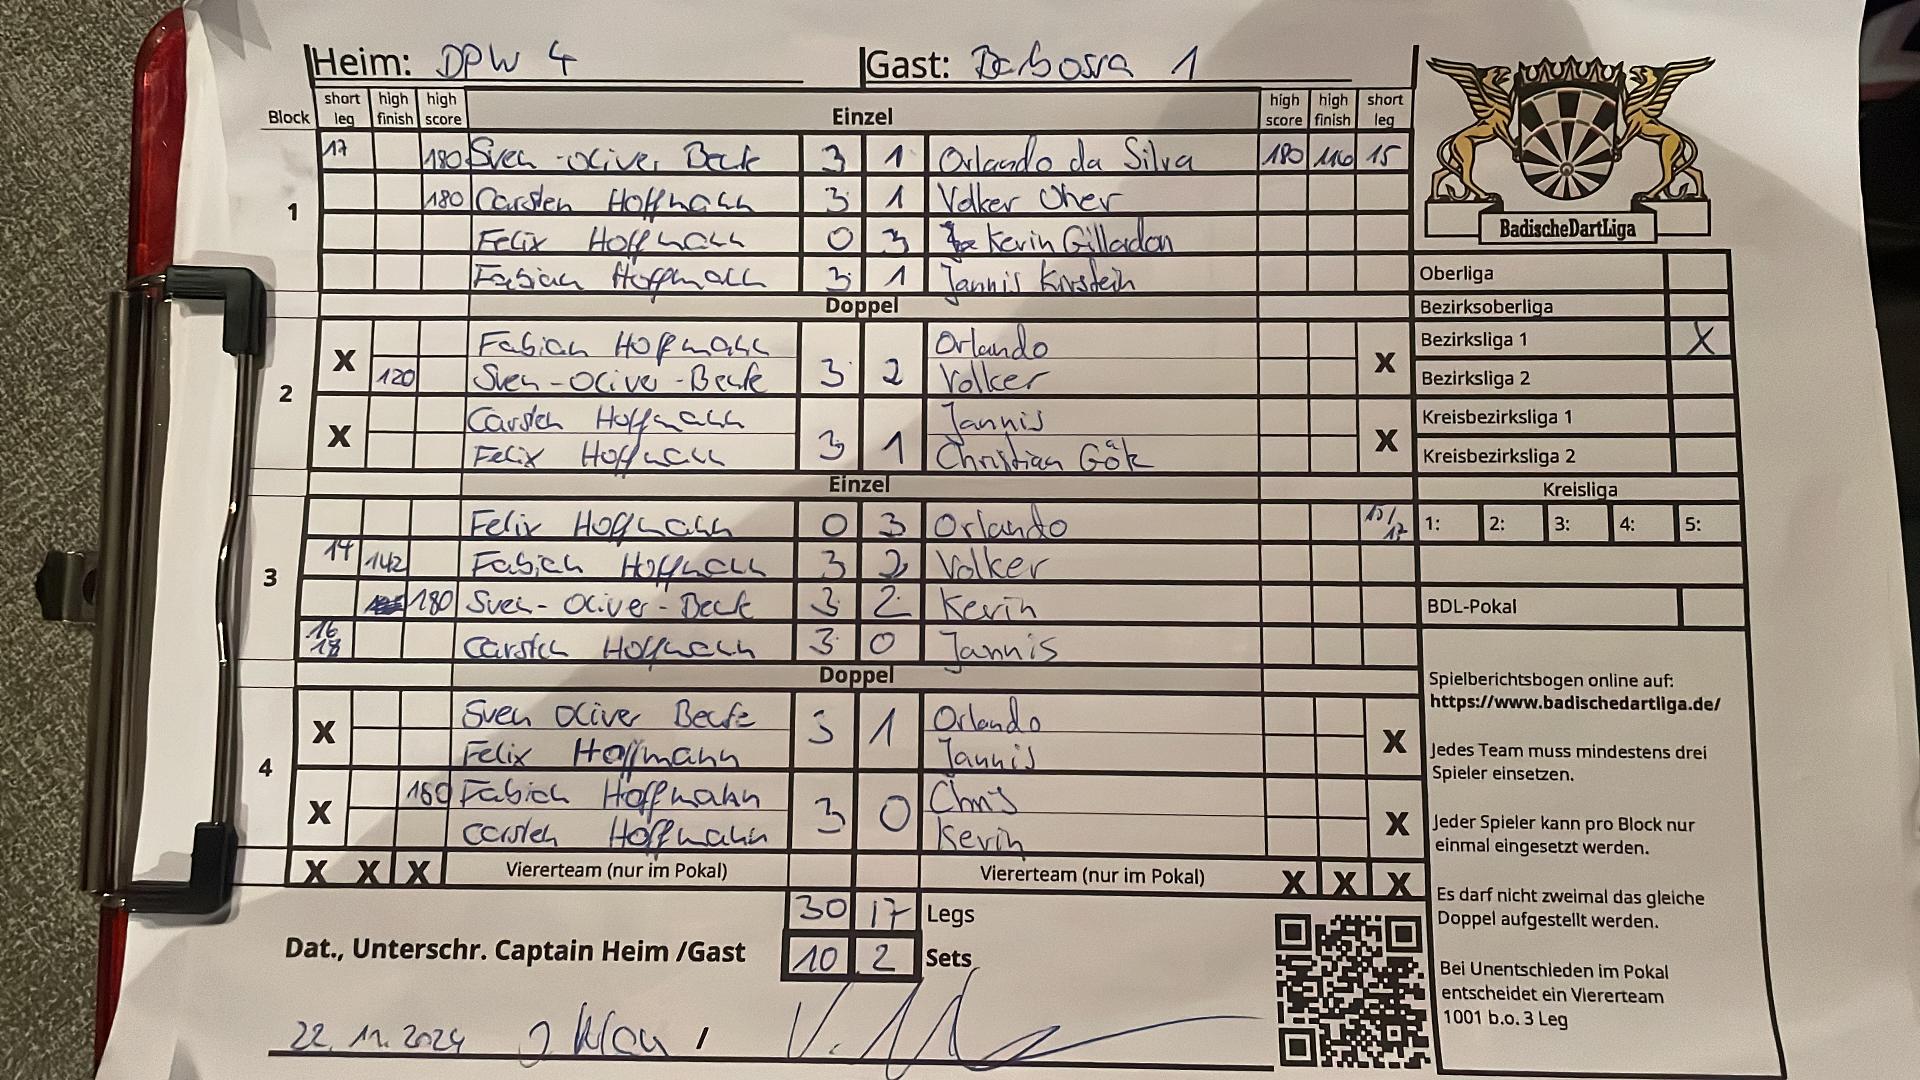 Heim: DPW 4 Gast: Barbossa 1
Block short leg high finish high score Einzel high score high finish short leg
1
17 180 Sven-Oliver Beck 3 1 Orlando da Silva 180 116 15
180 Carsten Hoffmann 3 1 Volker Oher
Felix Hoffmann 0 3 Kevin Gilladon
Fabian Hoffmann 3 1 Jannis Kirstein
Doppel
2
X Fabian Hoffmann 3 2 Orlando X
120 Sven-Oliver-Beck Volker
X Carsten Hoffmann 3 1 Jannis X
Felix Hoffmann Christian Gök
Einzel
3
Felix Hoffmann 0 3 Orlando 15/17
14 142 Fabian Hoffmann 3 2 Volker
180 Sven-Oliver-Beck 3 2 Kevin
16 18 Carsten Hoffmann 3 0 Jannis
Doppel
4
X Sven Oliver Beck 3 1 Orlando X
Felix Hoffmann Jannis
X 180 Fabian Hoffmann 3 0 Chris X
Carsten Hoffmann Kevin
X X X Viererteam (nur im Pokal) Viererteam (nur im Pokal) X X X
30 17 Legs
10 2 Sets
Dat., Unterschr. Captain Heim /Gast
22.11.2024 /
BadischeDartLiga
Oberliga
Bezirksoberliga
Bezirksliga 1 X
Bezirksliga 2
Kreisbezirksliga 1
Kreisbezirksliga 2
Kreisliga
1: 2: 3: 4: 5:
BDL-Pokal
Spielberichtsbogen online auf:
https://www.badischedartliga.de/
Jedes Team muss mindestens drei
Spieler einsetzen.
Jeder Spieler kann pro Block nur
einmal eingesetzt werden.
Es darf nicht zweimal das gleiche
Doppel aufgestellt werden.
Bei Unentschieden im Pokal
entscheidet ein Viererteam
1001 b.o. 3 Leg